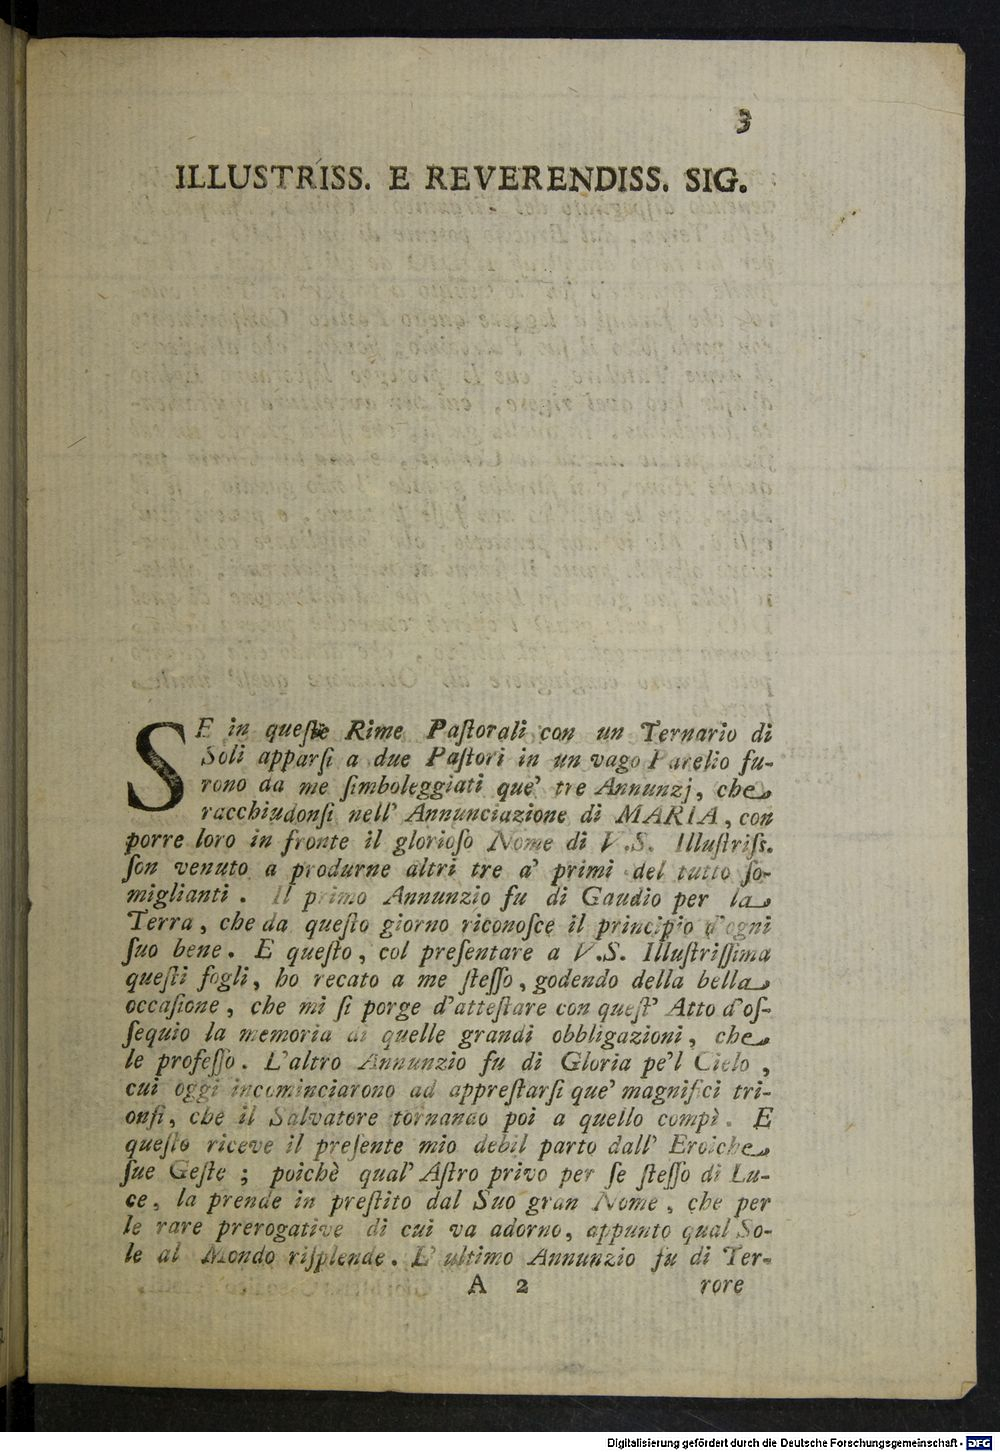 3
ILLUSTRISS. E REVERENDISS. SIG.
SE in queſte Rime Paſtorali con un Ternario di
Soli apparſi a due Paſtori in un vago Parelio fu-
rono da me ſimboleggiati que' tre Annunzj, che
racchiudonſi nell' Annunciazione di MARIA, con
porre loro in fronte il glorioſo Nome di V.S. Illuſtriſs.
ſon venuto a produrne altri tre a' primi del tutto ſo-
miglianti. Il primo Annunzio fu di Gaudio per la
Terra, che da queſto giorno riconoſce il principio d'ogni
ſuo bene. E queſto, col preſentare a V.S. Illuſtriſſima
queſti fogli, ho recato a me ſteſſo, godendo della bella
occaſione, che mi ſi porge d'atteſtare con queſt' Atto d'oſ-
ſequio la memoria di quelle grandi obbligazioni, che
le profeſſo. L'altro Annunzio fu di Gloria pe'l Cielo,
cui oggi incominciarono ad appreſtarſi que' magnifici tri-
onfi, che il Salvatore tornando poi a quello compì. E
queſto riceve il preſente mio debil parto dall' Eroiche
ſue Geſte; poichè qual' Aſtro privo per ſe ſteſſo di Lu-
ce, la prende in preſtito dal Suo gran Nome, che per
le rare prerogative di cui va adorno, appunto qual So-
le al Mondo riſplende. L'ultimo Annunzio fu di Ter-
A 2 rore
Digitalisierung gefördert durch die Deutsche Forschungsgemeinschaft - DFG